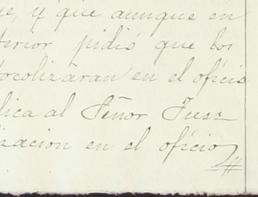 e, y que aunque en
terior pidió que los
tocolizaran en el oficio
lica al Señor Juez
izacion en el oficio